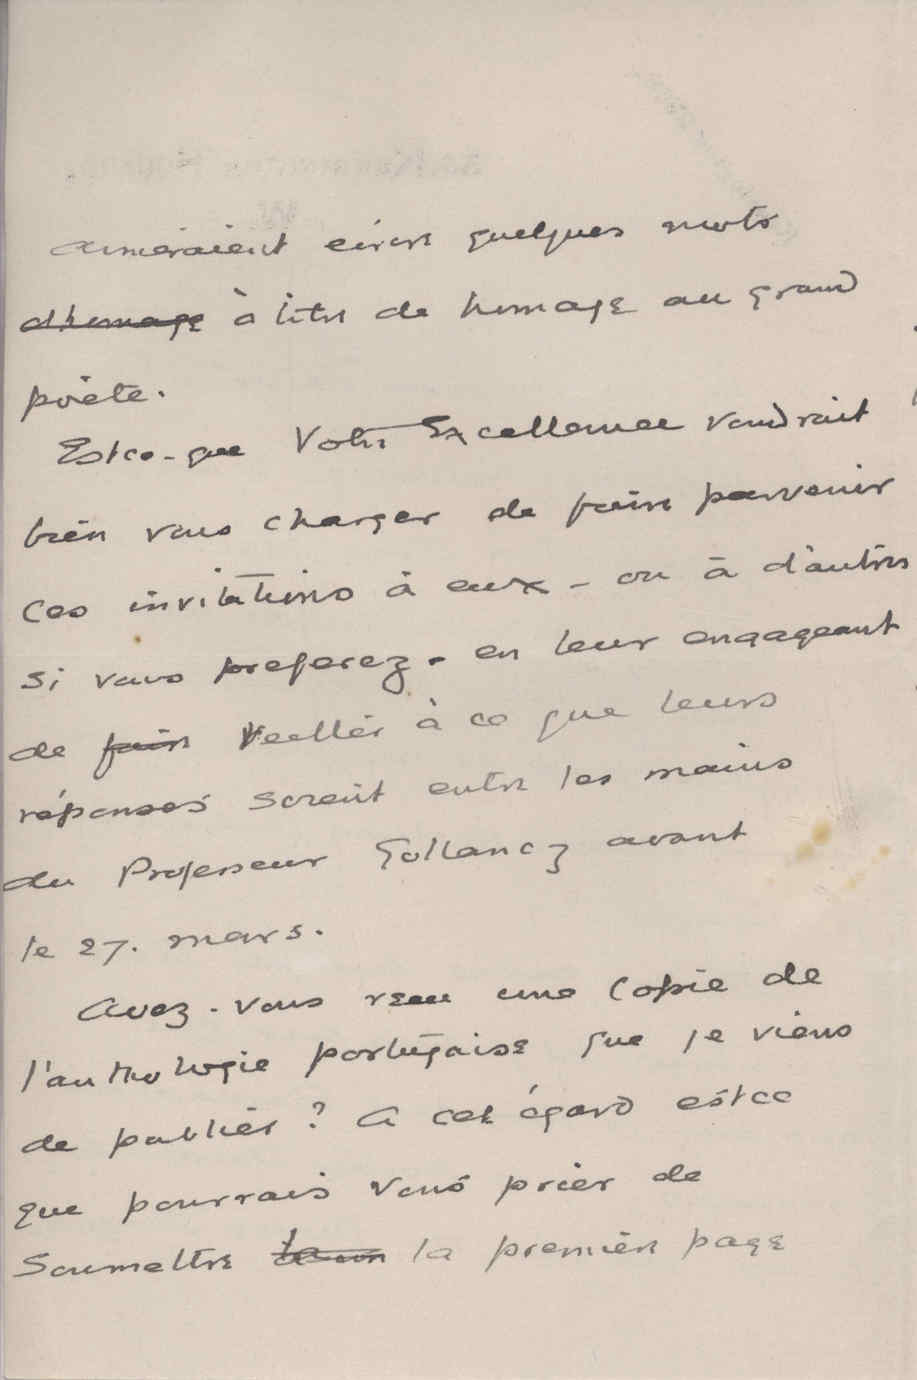 aimeraient ecrire quelques mots
d'homage à titre de homage au grand
poète.
Est ce-que Votre Excellence voudrait
bien vous charger de faire parvenir
ces invitations à eux - ou à d'autres
si vous preferez - en leur engageant
de faire veiller à ce que leurs
réponses soient entre les mains
du Professeur Gollancz avant
le 27. mars.
Avez-vous reçu une copie de
l'anthologie portugaise que je viens
de publier? A cet égard est ce
que pourrais vous prier de
soumettre la première page